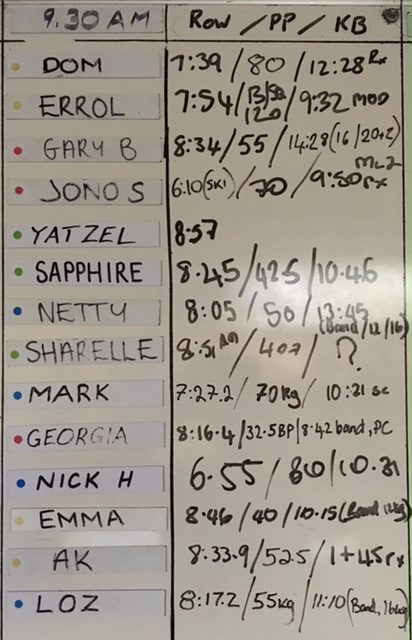 9.30 AM Row / PP / KB
DOM 7:39 / 80 / 12:28 Rx
ERROL 7:54 / / 9:32 MOD
120
GARY B 8:34 / 55 / 14:28 (16 / 20+2)
JONO S 6:10 (SKI) / 70 / 9:50 rx
YATZEL 8:57
SAPPHIRE 8.45 / 42.5 / 10.46
NETTY 8:05 / 50 / 13:45
(Band / 12 / 16)
SHARELLE 8:51 / / ?
MARK 7:27.2 / 70kg / 10:21 sc
GEORGIA 8:16.4 / 32.5BP / 8.42 band, PC
NICK H 6.55 / 80 / 10.31
EMMA 8.46 / 40 / 10.15 (Band 12kg)
AK 8:33.9 / 52.5 / 1+45 rx
LOZ 8:17.2 / 55kg / 11:10 (Band, 16kg)